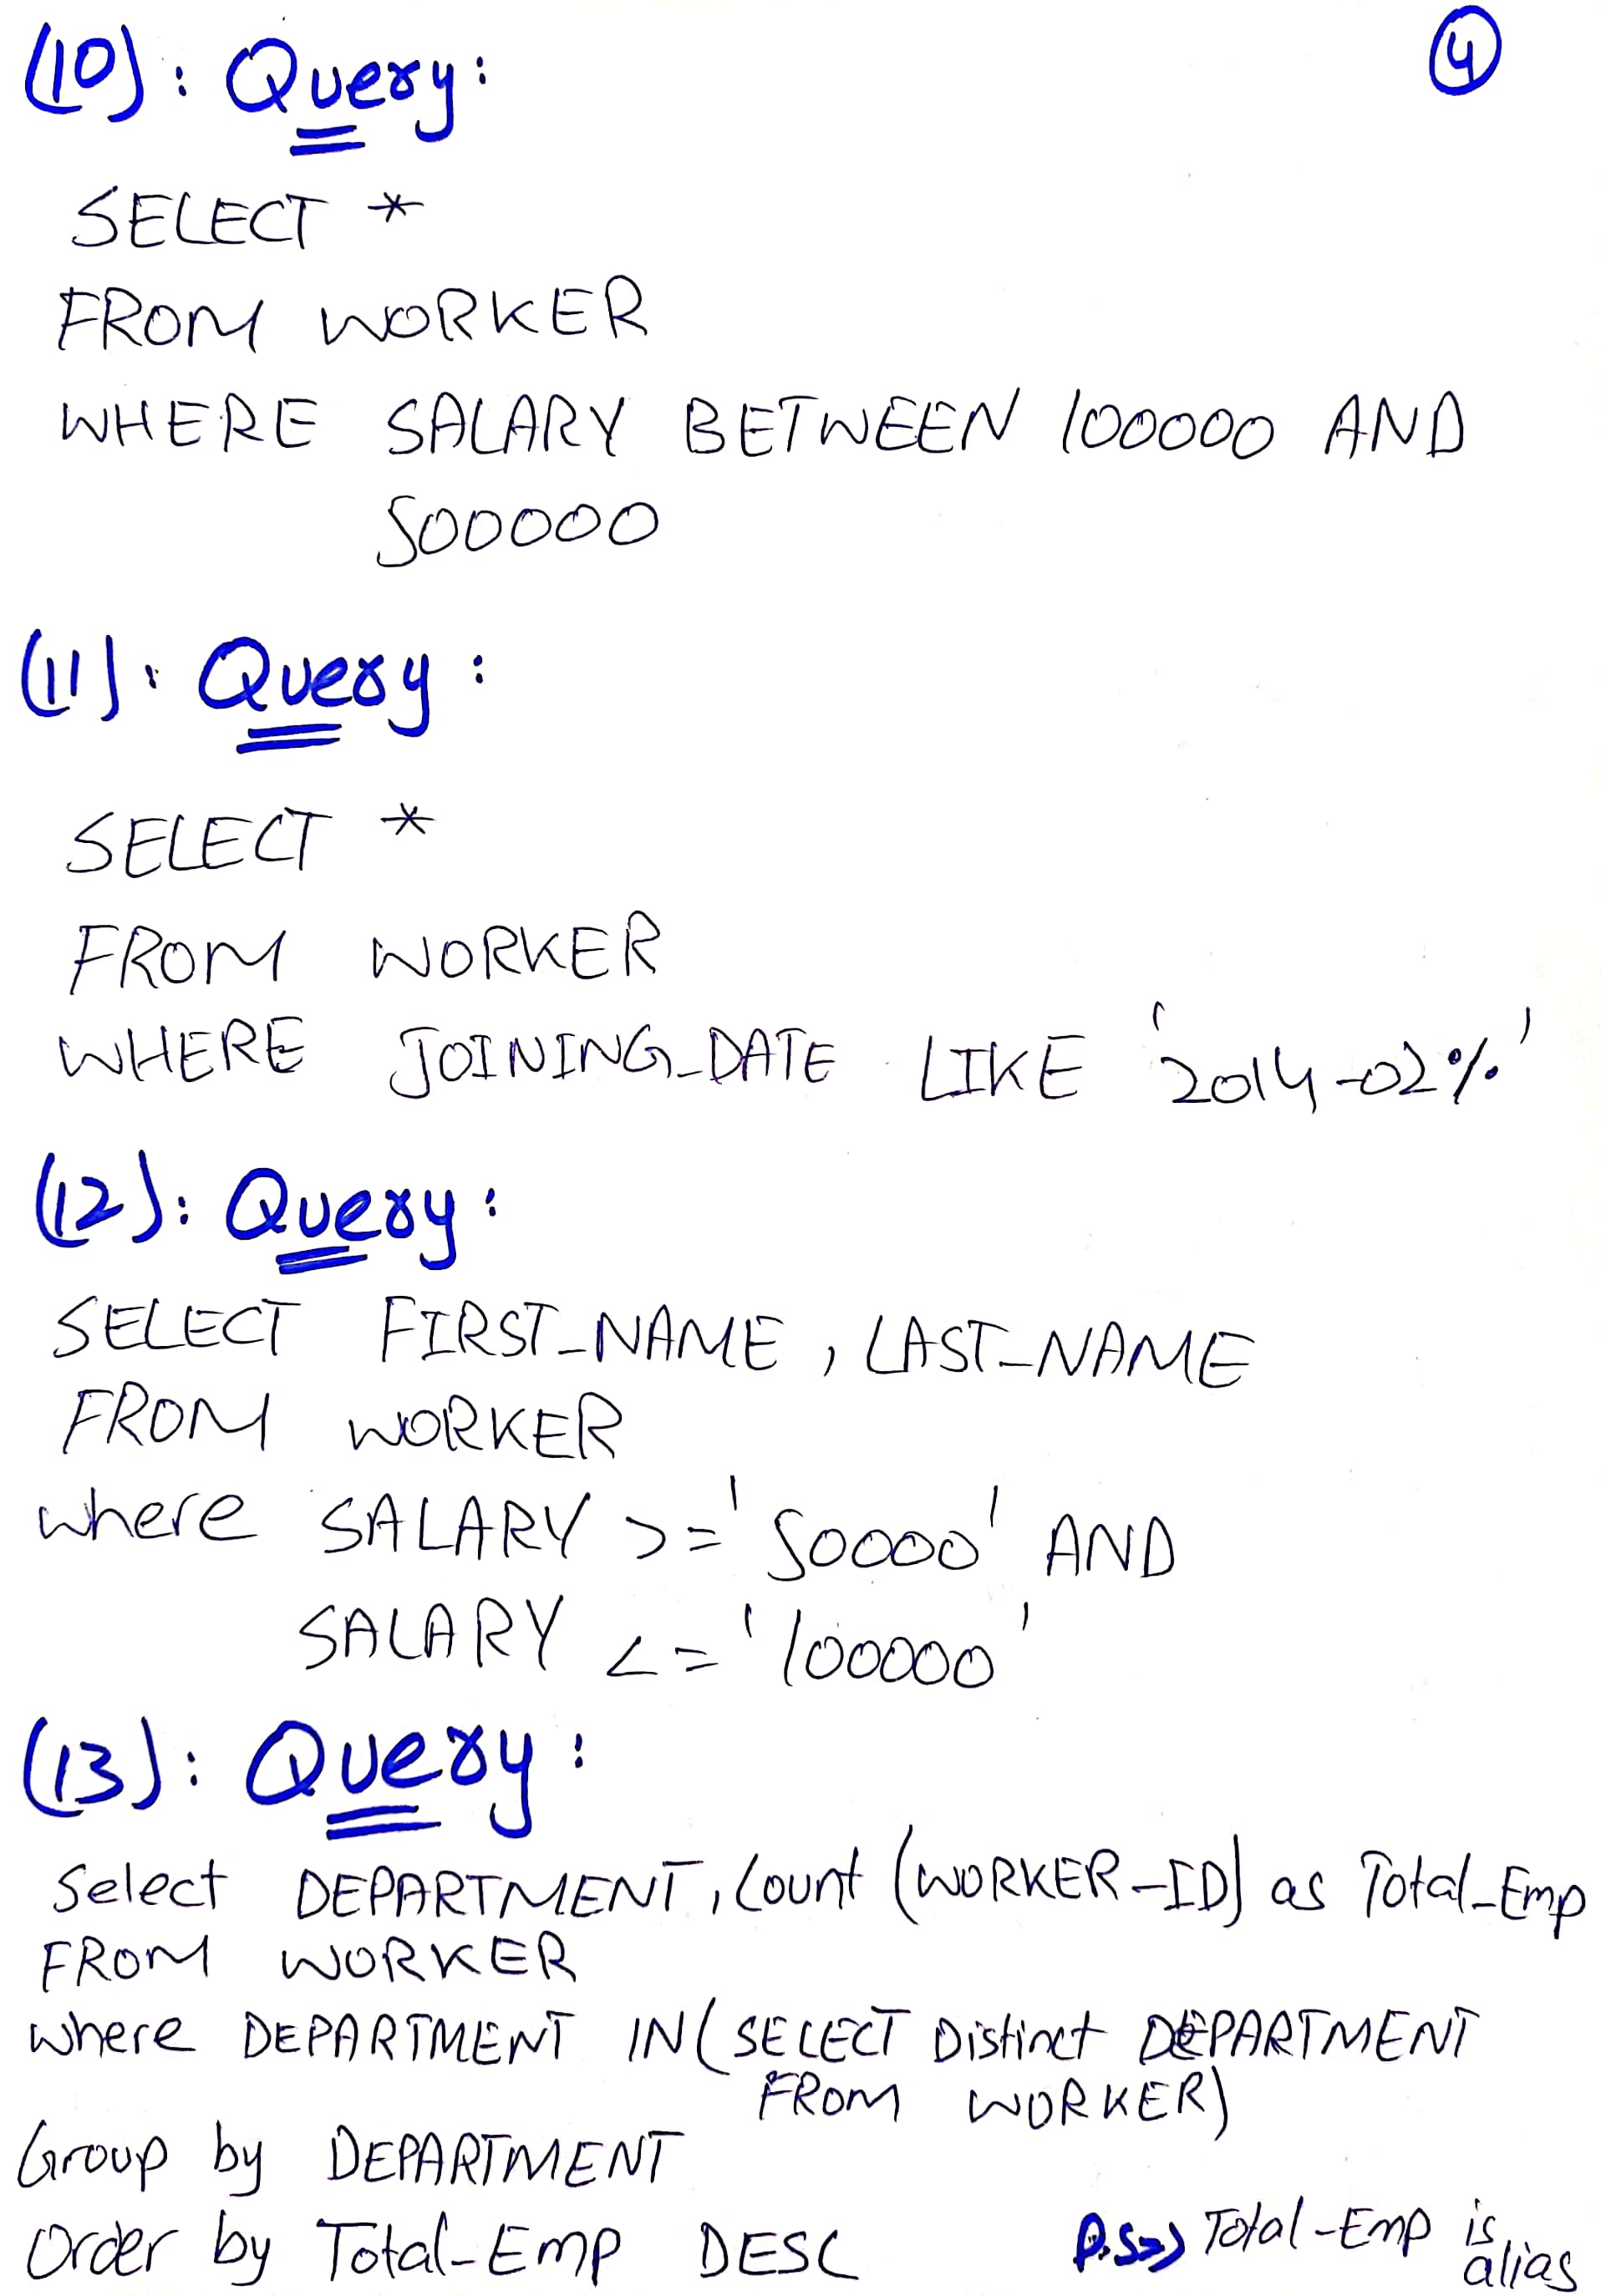 (10): Query:
4
SELECT *
FROM WORKER
WHERE SALARY BETWEEN 100000 AND
500000
(11): Query:
SELECT *
FROM WORKER
WHERE JOINING_DATE LIKE '2014-02%'
(12): Query:
SELECT FIRST_NAME, LAST_NAME
FROM WORKER
where SALARY >= '50000' AND
SALARY <= '100000'
(13): Query:
Select DEPARTMENT, Count (WORKER_ID) as Total_Emp
FROM WORKER
where DEPARTMENT IN (SELECT Distinct DEPARTMENT
FROM WORKER)
Group by DEPARTMENT
Order by Total_Emp DESC
P.S=>> Total-Emp is
alias